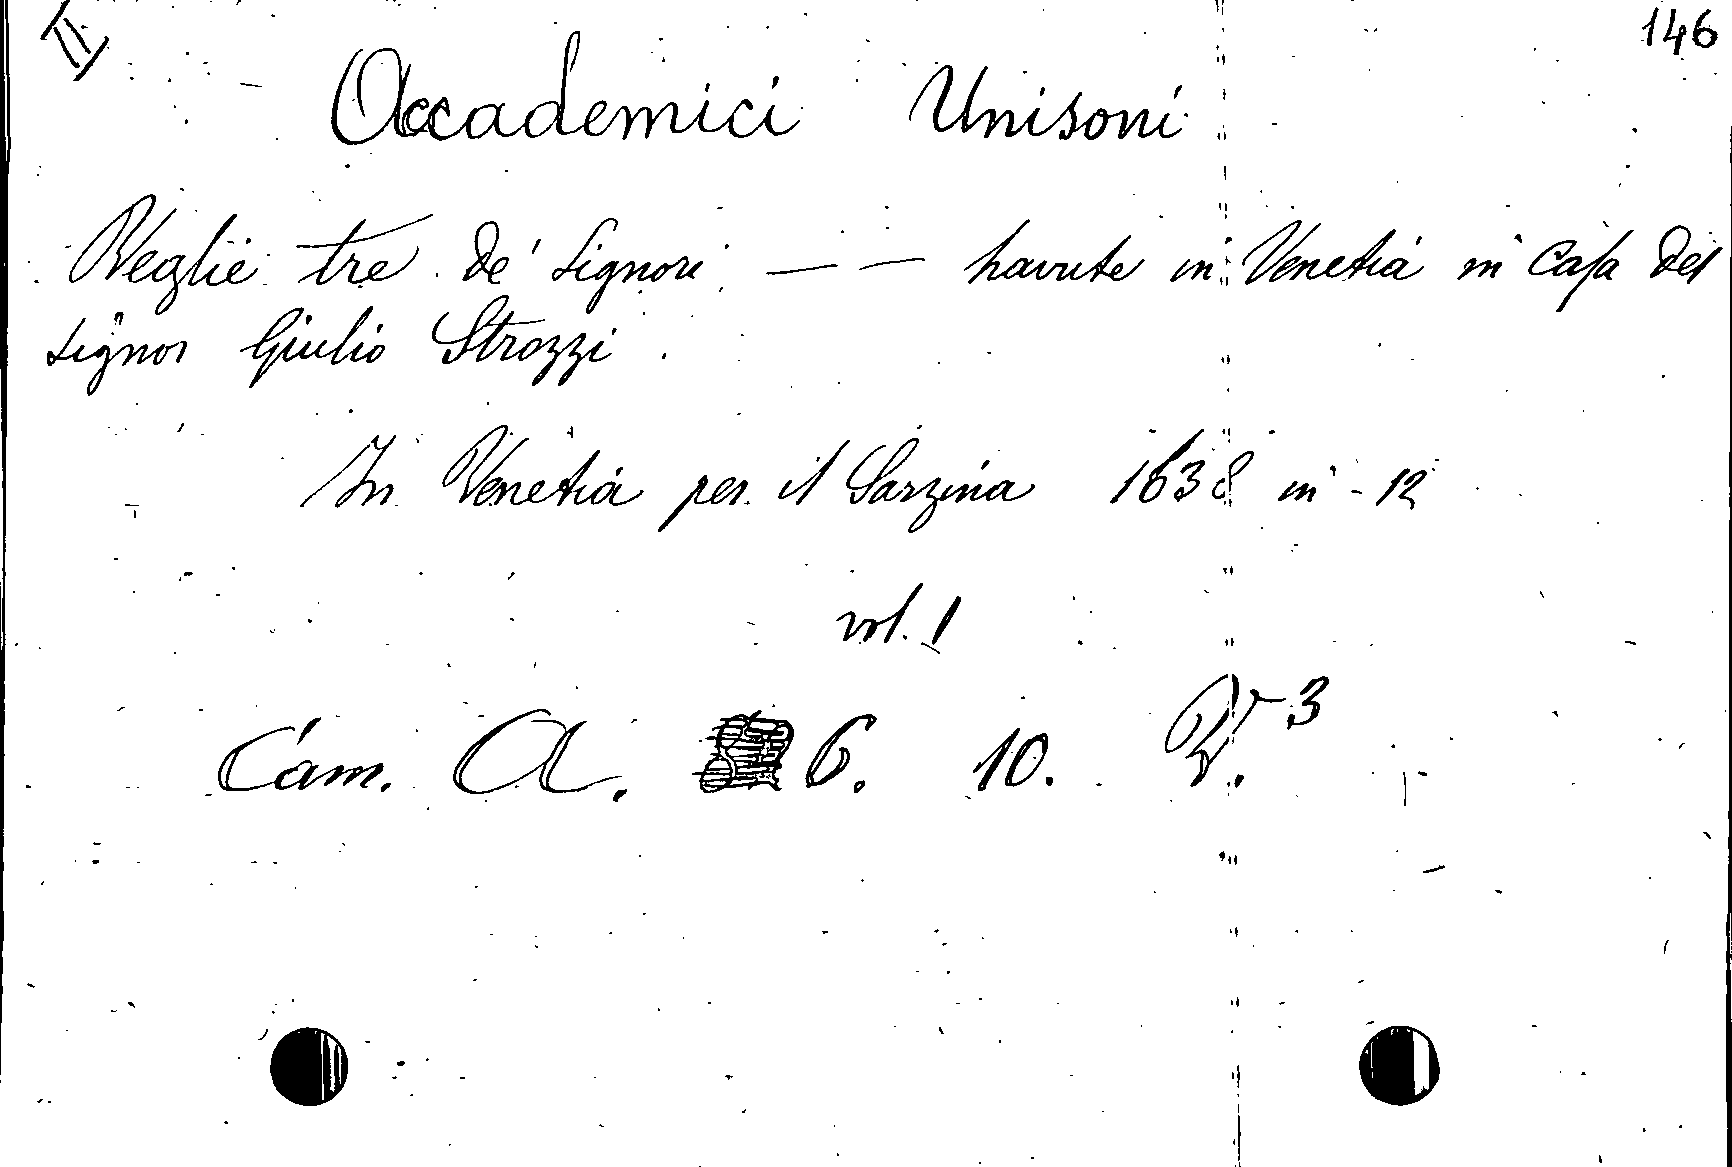 II
146
Accademici Unisoni
Veglie tre de' Signori — — havute in Venetia in Casa del
Signor Giulio Strozzi.
In Venetia per il Sarzina 1638 in-12
vol. 1
Cam. A. 6. 10. V. 3